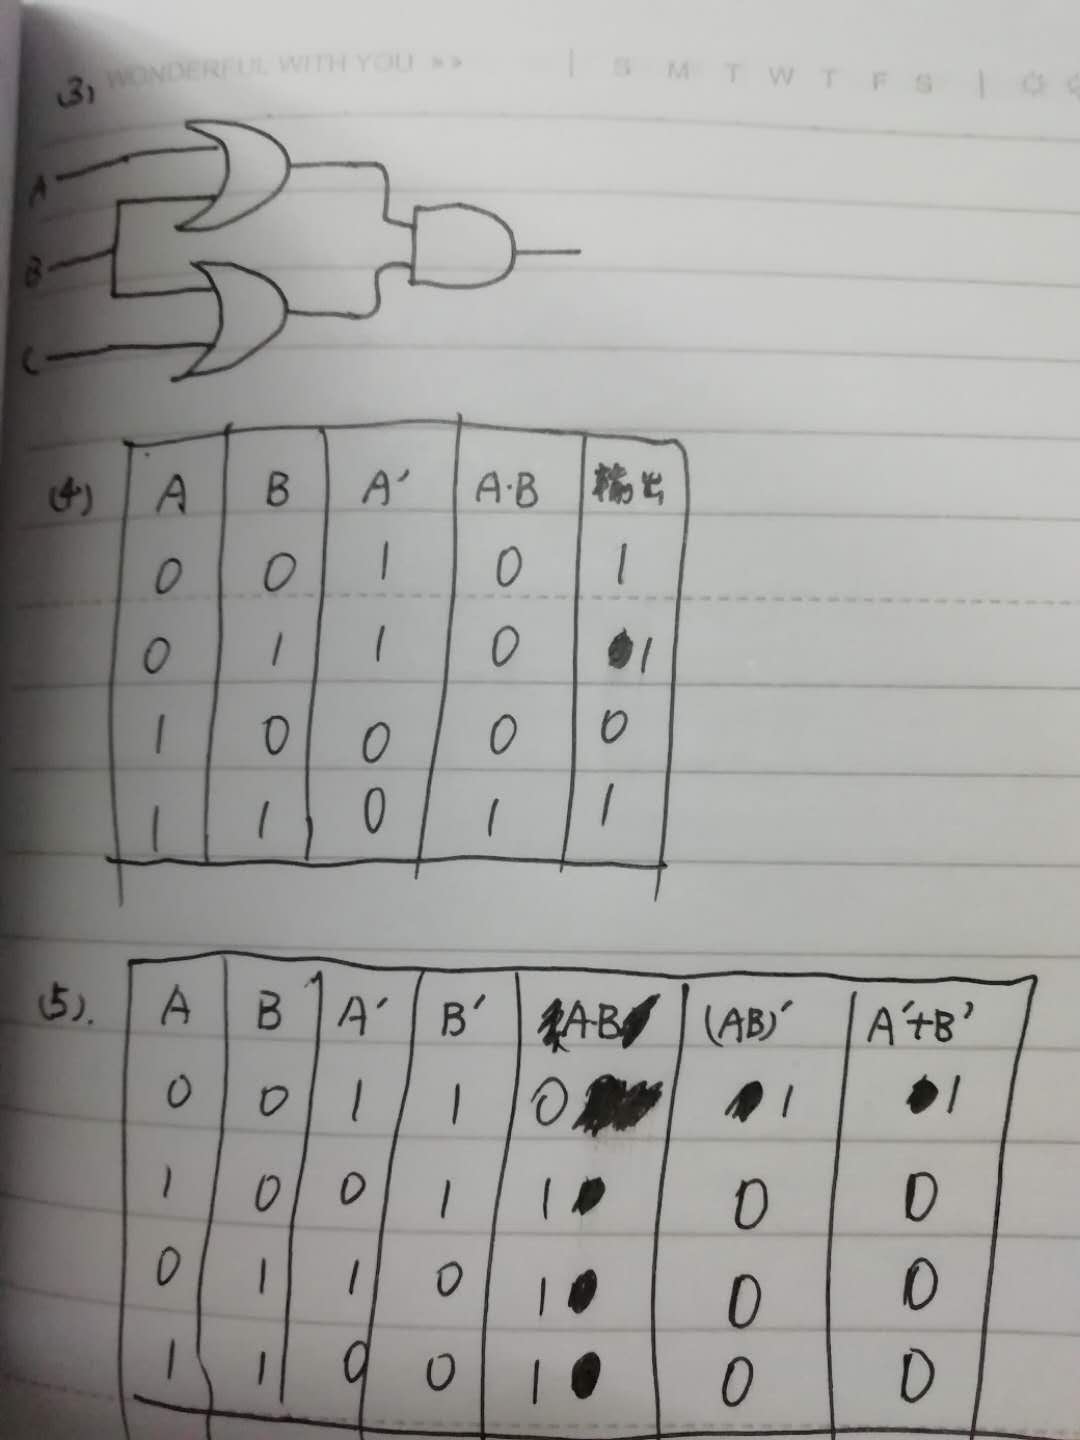 WONDERFUL WITH YOU >> | S M T W T F S |
(3)
A
B
C
(4) A B A′ A·B 输出
0 0 1 0 1
0 1 1 0 1
1 0 0 0 0
1 1 0 1 1
(5). A B A′ B′ A·B (AB)′ A′+B′
0 0 1 1 0 1 1
1 0 0 1 1 0 0
0 1 1 0 1 0 0
1 1 0 0 1 0 0